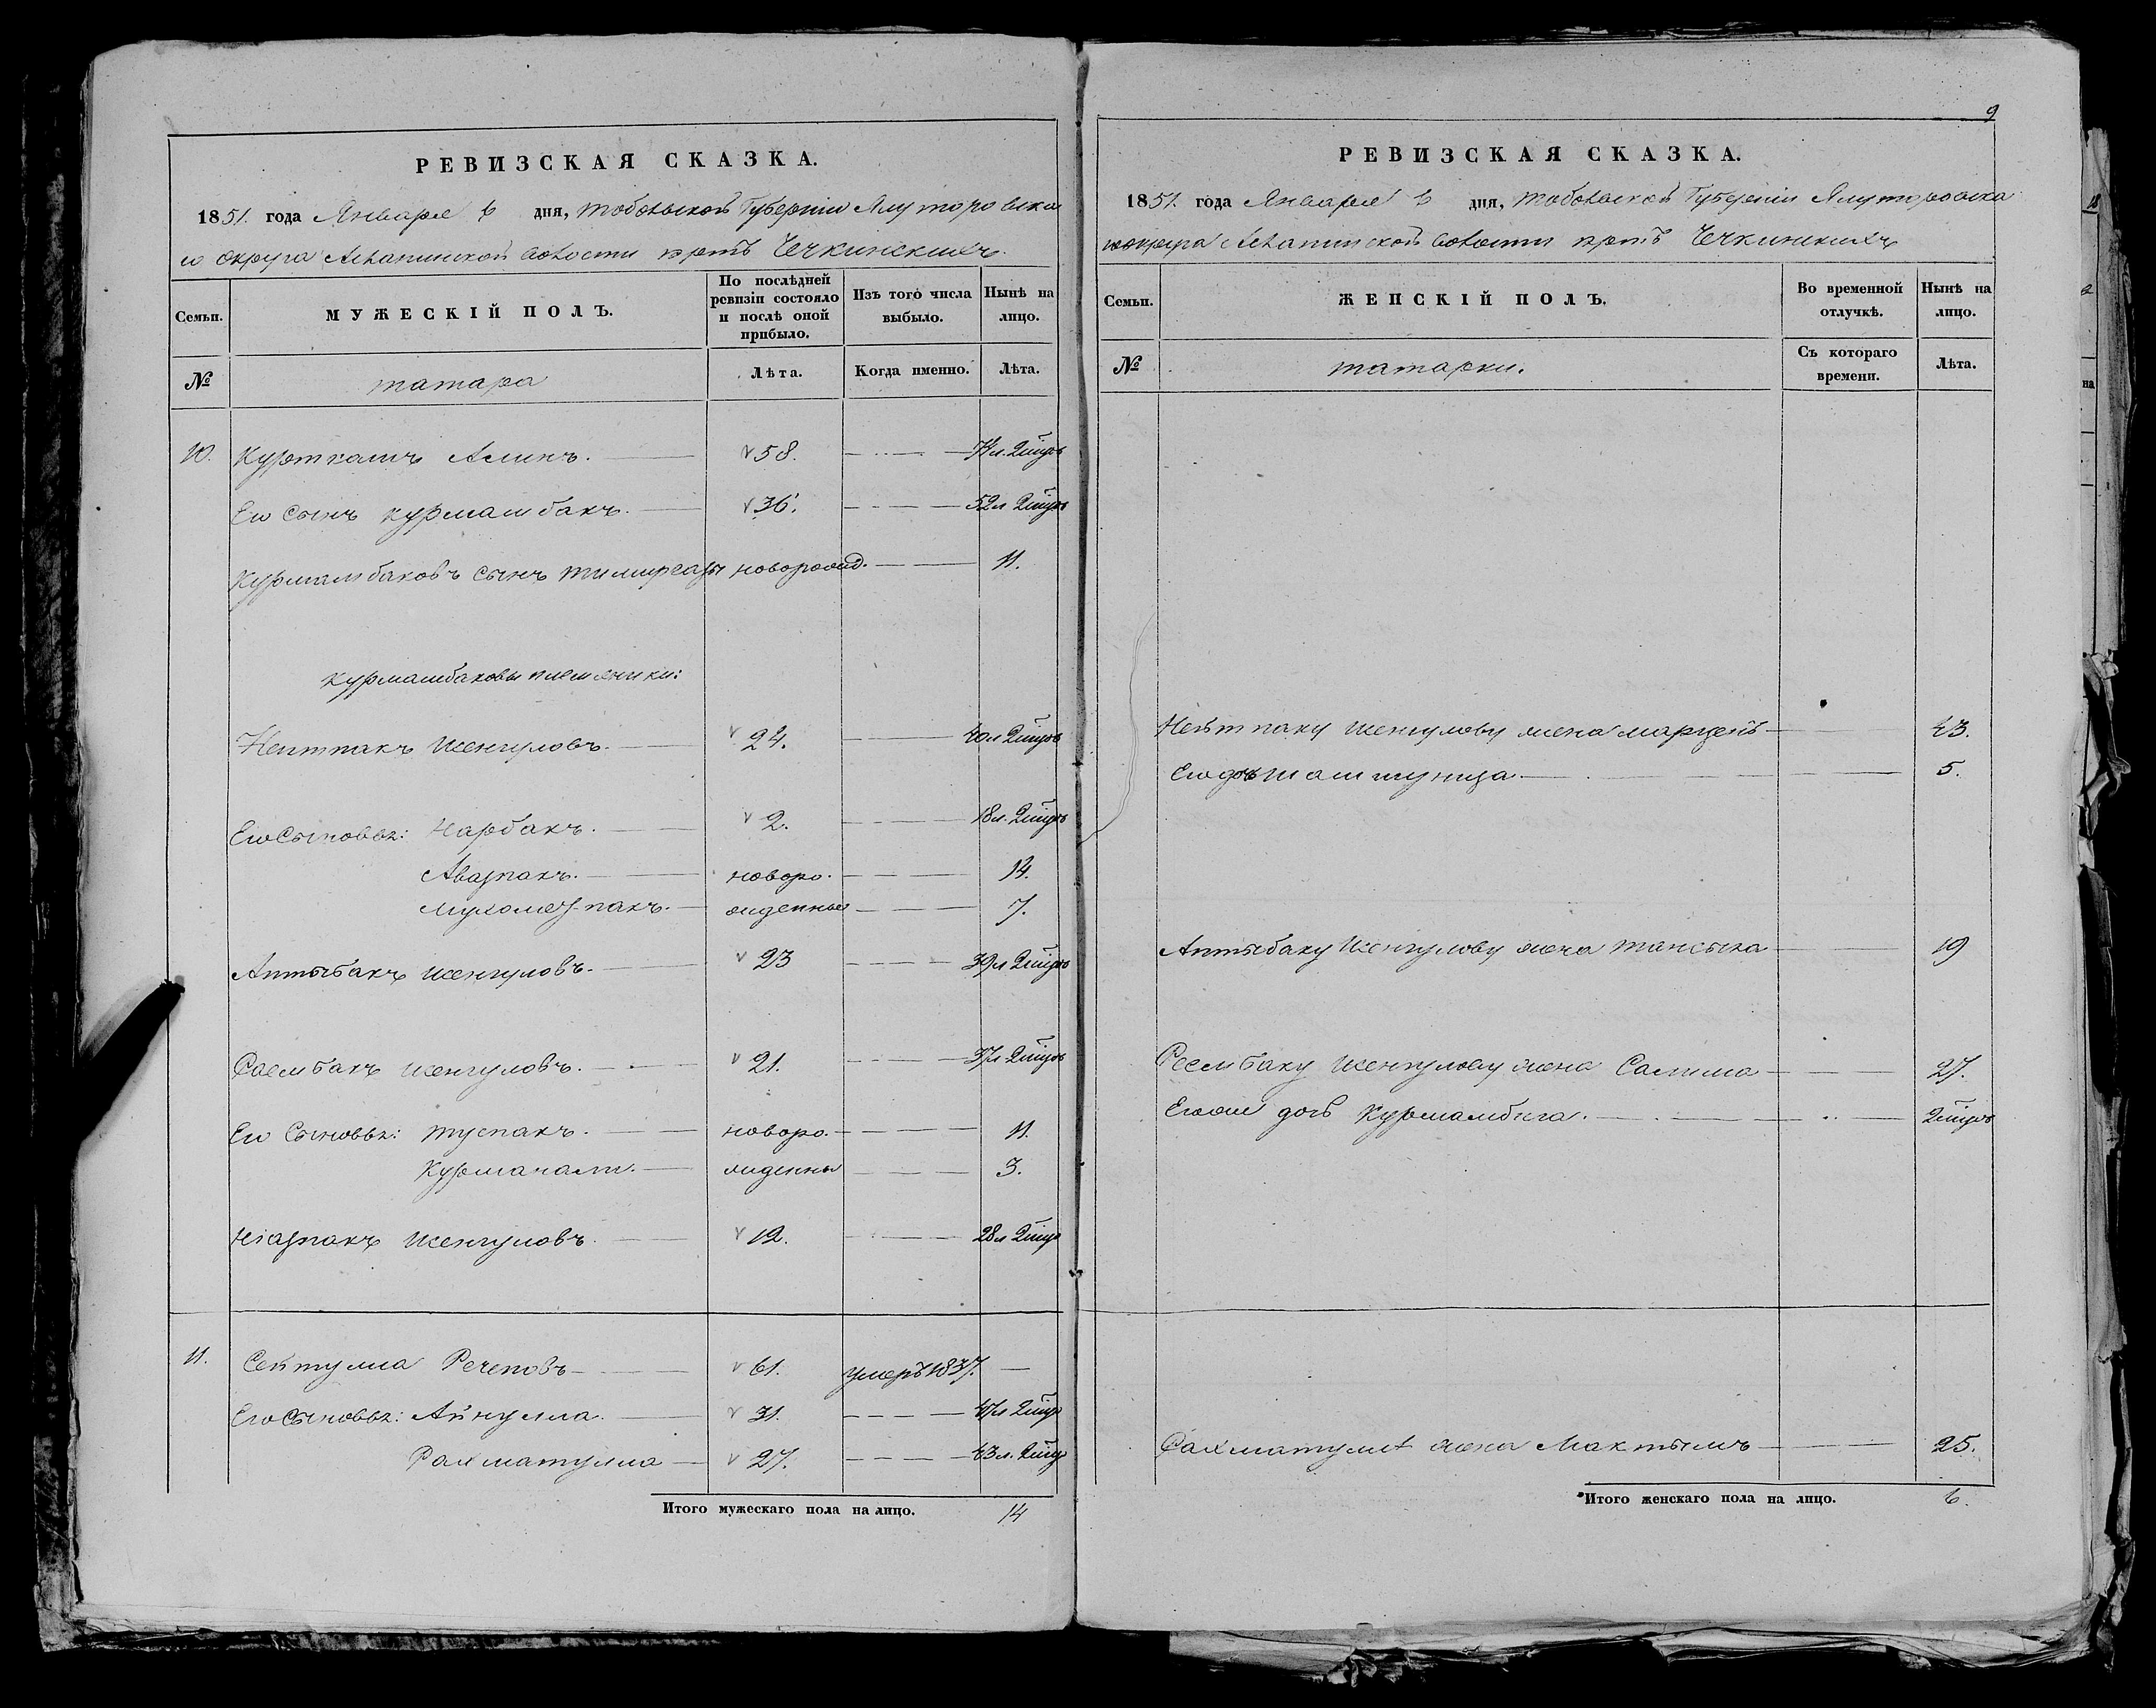 РЕВИЗСКАЯ СКАЗКА.
1851. года Января 6 дня, Тобольской Губерніи Ялуторовска
го округа Асланинской волости юртъ Чечкинскихъ.
Семьи.
МУЖЕСКІЙ ПОЛЪ.
По послѣдней ревизіи состояло и послѣ оной прибыло.
Изъ того числа выбыло.
Нынѣ на лицо.
№
татара
Лѣта.
Когда именно.
Лѣта.
10. Курткашъ Алинъ. 58. 74 л. 2 міць
Его сынъ Курмамбакъ. 36. 52 л 2 міць
Курмамбаковъ сынъ Тимиргазы новорожд. 11.
Курмамбаковы племяники:
Неитпакъ Шенгуловъ. 24. 40 л 2 міць
Его Сыновья: Нарбакъ. 2. 18 л. 2 міць
Авазпакъ. новоро. 14.
Мухометпакъ. жденные 7.
Аптыбакъ Шенгуловъ. 23 39 л 2 міць
Раембакъ Шенгуловъ. 21. 37 л 2 міць
Его Сыновья: Туспакъ. новоро. 11.
Курманали. жденны 3.
Ніазпакъ Шенгуловъ. 12. 28 л 2 міць
11. Сейтулла Речеповъ 61. умеръ 1837.
Его Сыновья: Айнулла. 31. 47 л 2 міць
Рахматулла 27. 43 л. 2 міць
Итого мужескаго пола на лицо. 14
9
РЕВИЗСКАЯ СКАЗКА.
1851. года Января 6 дня, Тобольской Губерніи Ялуторовска
го округа Асланинской волости юртъ Чечкинскихъ
Семьи.
ЖЕНСКІЙ ПОЛЪ.
Во временной отлучкѣ.
Нынѣ на лицо.
№
татарки.
Съ котораго времени.
Лѣта.
Нейтпаку Шенгулову жена 43.
Его дочь 5.
Аптыбаку Шенгулову жена Тансыка 19
Реембаку Шенгулову жена Салима 27.
Его же дочь Курмамбига. 2 міць
Рахматулѣ жена Мактымъ 25.
Итого женскаго пола на лицо. 6.